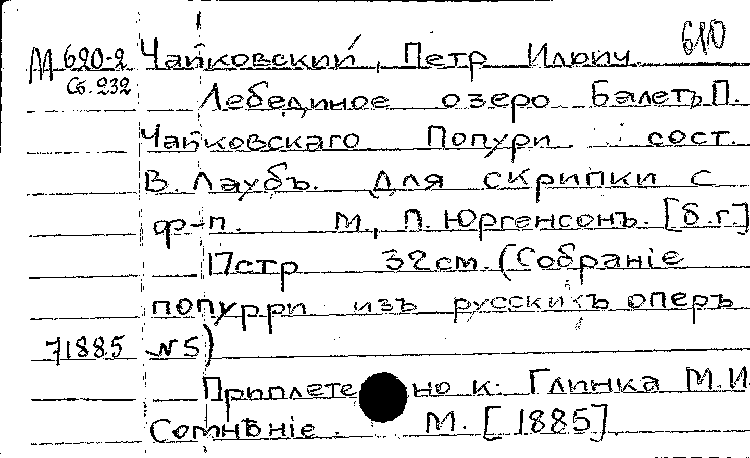 М 620-2 Чайковский, Петр Илюич. 610
Сб. 232 Лебединое озеро Балетъ П.
Чайковскаго Попури сост.
В. Лаубъ. Для скрипки с
ф-п. М., П. Юргенсонъ. [б.г.]
17стр 32см. (Собранiе
попурри изъ русскихъ оперъ
71885 N5)
Приплете но к: Глинка М.И
Сомнѣнiе. М. [1885]